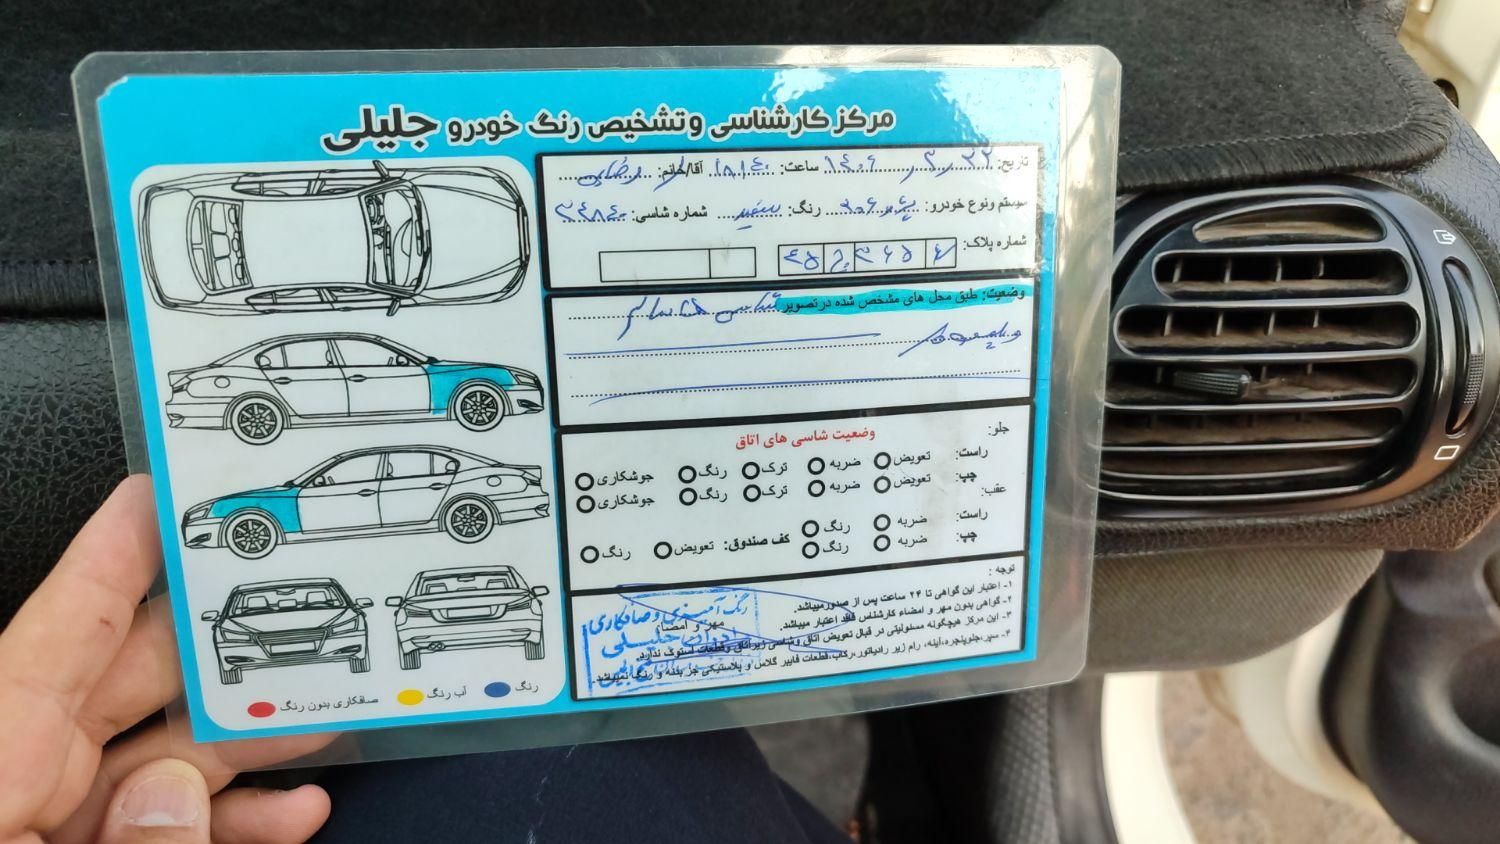 مرکز کارشناسی و تشخیص رنگ خودرو جلیلی
تاریخ: ساعت: ۱۸/۴۰ آقا/خانم: رضایی
سیستم ونوع خودرو: پژو ۲۰۶ رنگ: سفید شماره شاسی:
شماره پلاک:
وضعیت: طبق محل های مشخص شده در تصویر شاسی ها سالم
وضعیت شاسی های اتاق
جلو:
راست: تعویض ضربه ترک رنگ جوشکاری
چپ: تعویض ضربه ترک رنگ جوشکاری
عقب:
راست: ضربه رنگ
چپ: ضربه رنگ کف صندوق: تعویض رنگ
توجه :
۱- اعتبار این گواهی تا ۲۴ ساعت پس از صدور میباشد.
۲- گواهی بدون مهر و امضاء کارشناس فاقد اعتبار میباشد.
۳- این مرکز هیچگونه مسئولیتی در قبال تعویض اتاق وشاسی زیراتاق وقطعات استوک ندارد.
۴- سپر،جلوپنجره،آینه، رام زیر رادیاتور،رکاب،قطعات فایبر گلاس و پلاستیکی جز بدنه و رنگ نمیباشد.
مهر و امضا
رنگ آمیزی و صافکاری
جلیلی
رنگ آب رنگ صافکاری بدون رنگ